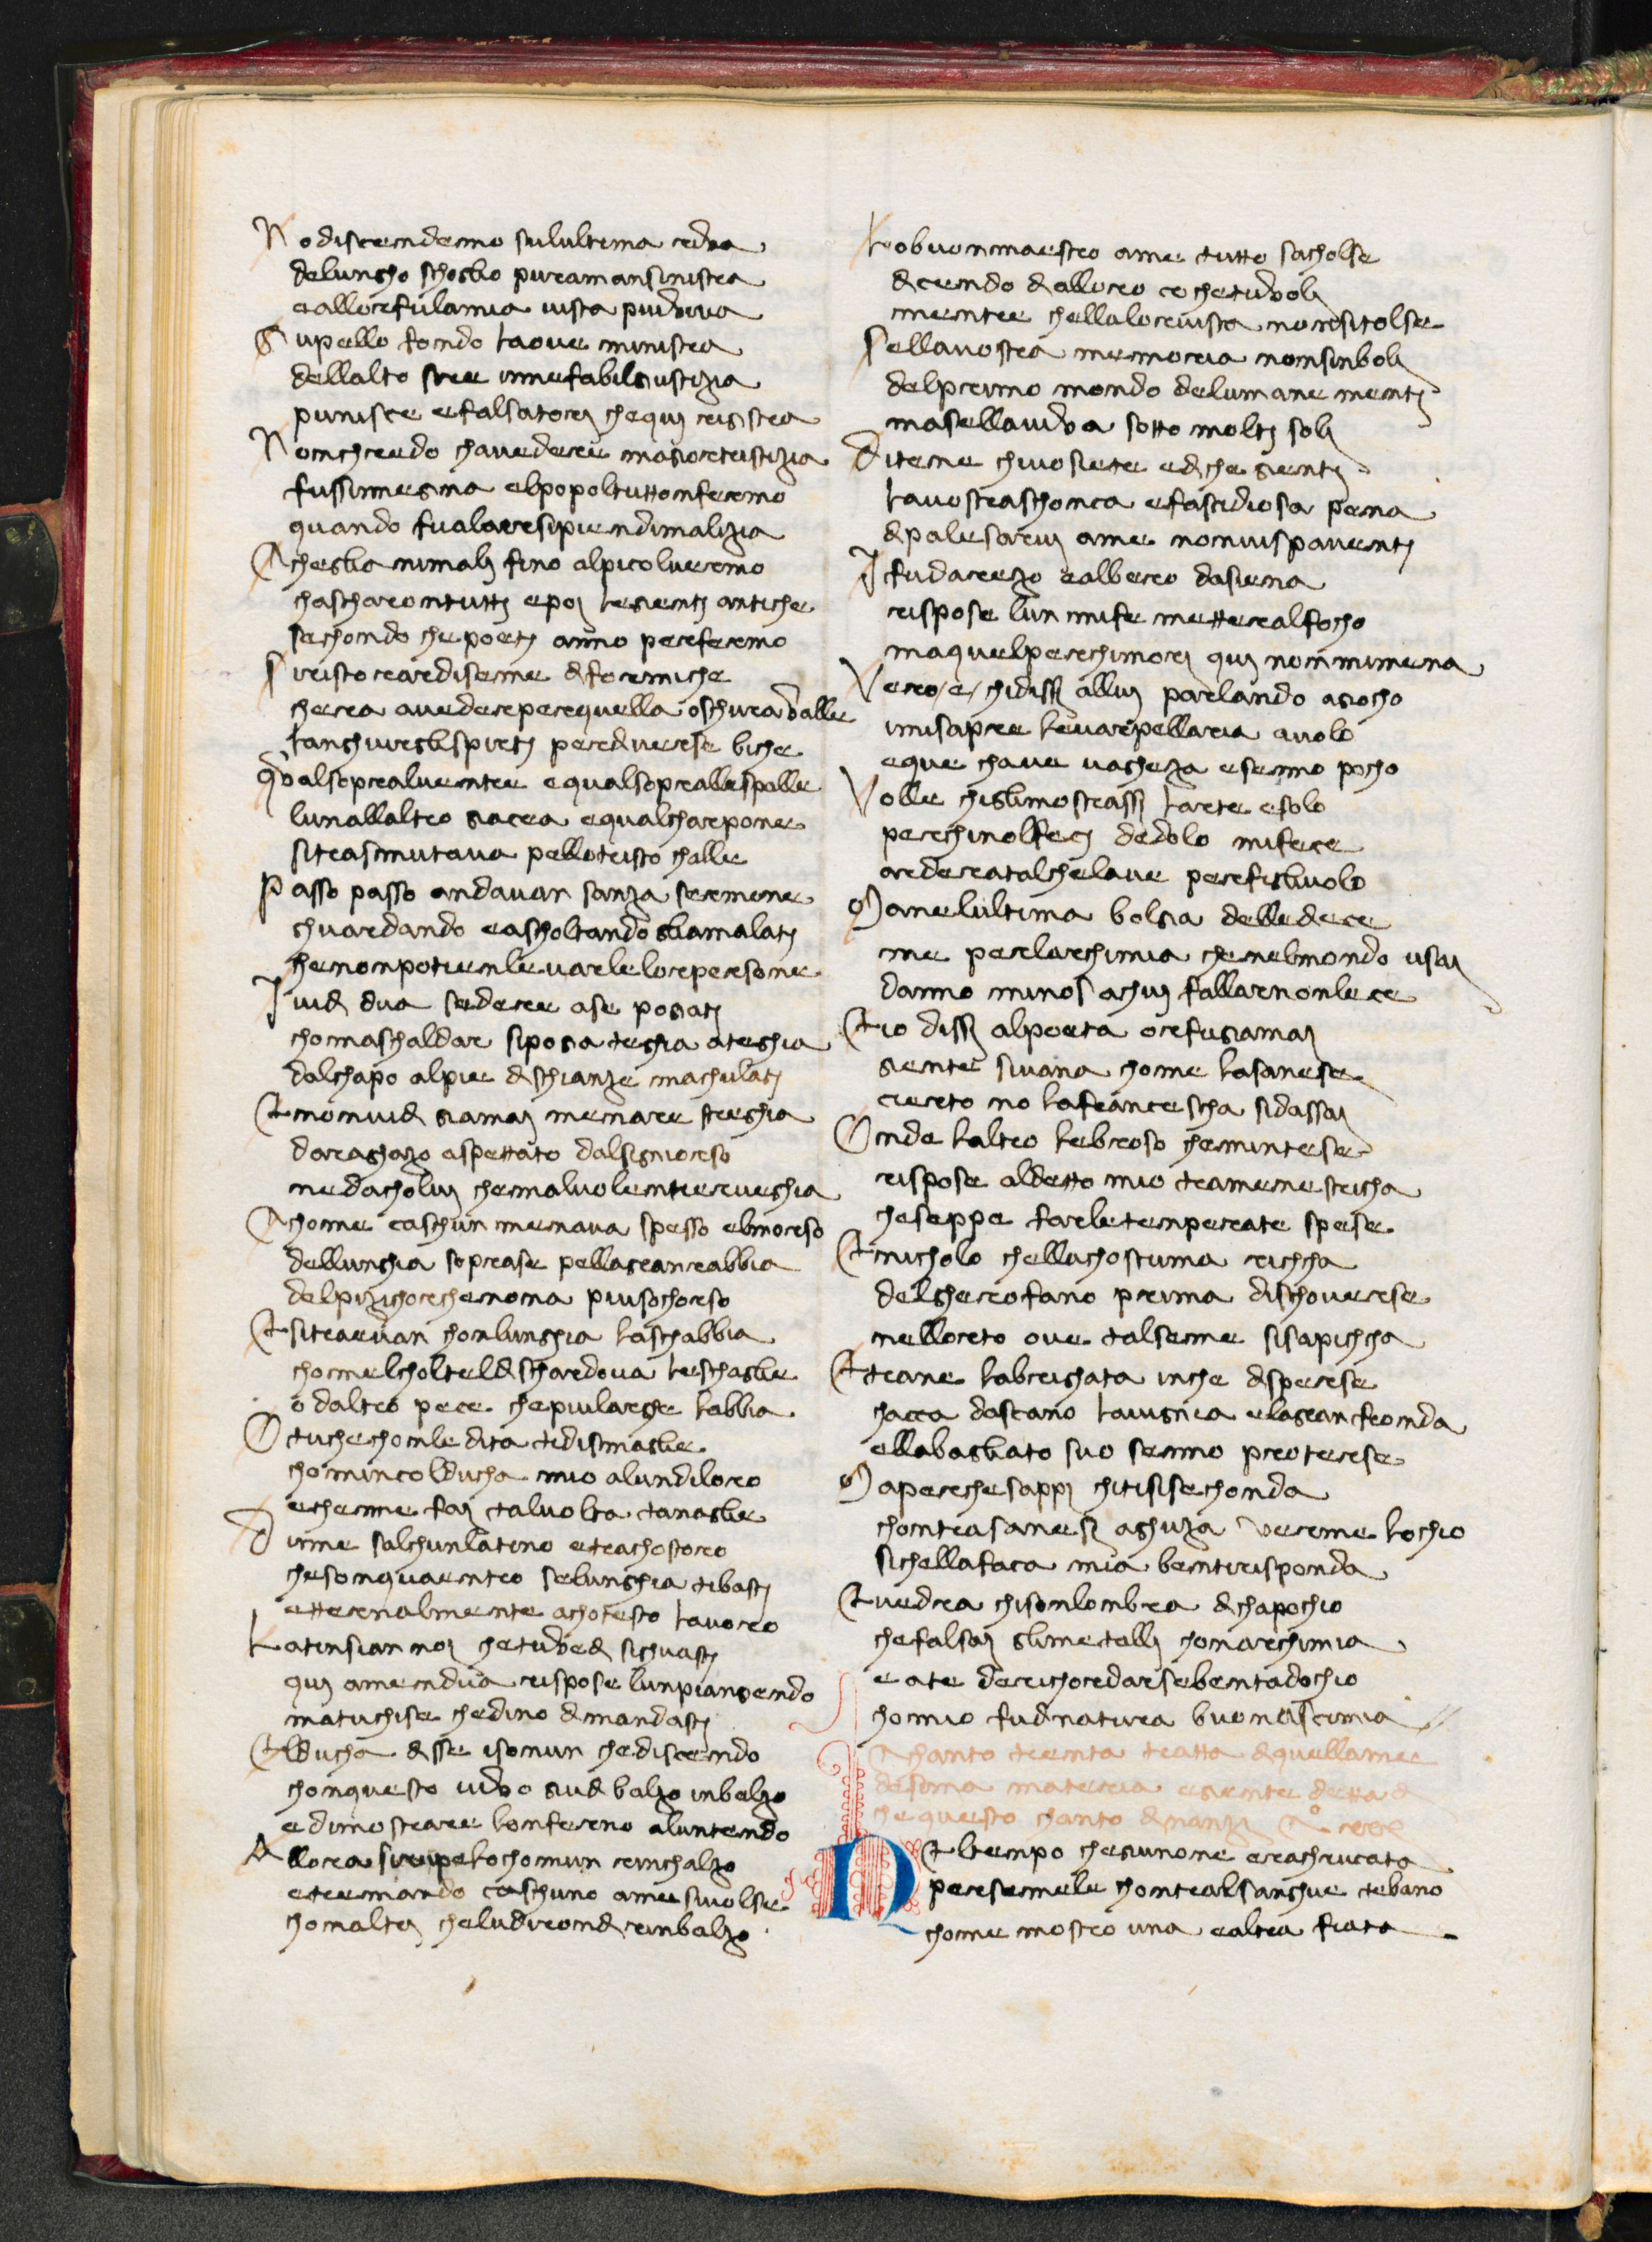 No discendemo sulultima riva
delungho schoglio puramansinistra
e allorfulamia vista piuviva
Gupello fondo laove ministra
dellalto sire innefabilgiustizia
punisce efalsatori chequi rigistra
Nonchredo chavedere magiortristizia
fussinnegina elpopoltuttonfermo
quando fualaeresipiendimalizia
Cheglianimali fino alpicolvermo
chascharontutti epoi legienti antiche
sechondo che poeti anno perfermo
Siristorardiseme diformiche
chera avedereperquella oschuravalle
languireglispirti perdiverse biche
Qvalsopralventre e qualsopralle spalle
lunallaltro giacea equalcharpone
sitrasmutava pellotristo challe
Passo passo andavan sanza sermone
ghuardando e ascholtando gliamalati
chenonpotienlevarleloropersone
Ividi dua sedere ase pogiati
chomaschaldar sipogia teghia ateghia
dalchapo alpie dischianze machulati
E nonvidi giamai menare streghia
daraghazo aspettato dalsignorso
nedacholui chemalvolentierveghia
Chome ciaschun menava spesso elmorso
dellunghia soprase pellagranrabbia
delpizichorchenona piusochorso
E sitraevan gionlunghia laschabbia
chomelcholteldischardova leschaglie
o daltro pece chepiularghe labbia
O tuchechonle dita tidismaglie
chomincolducha mio alundiloro
echenne fai talvolta tanaglie
Dinne salchunlatino etrachostoro
chesonquaentro selunghia tibasti
etternalmente achotesto lavoro
Latinsian noi chetuvedi sighuasti
qui amendua rispose lunpiangendo
matuchise chedino dimandasti
Elducha disse isonun chedisciendo
chonquesto vivo giudi balzo inbalzo
e dimostrare lonferno aluntendo
Allora sirupelochomun rinchalzo
etremando ciaschuno ame sivolse
chonaltri cheludirondi rinbalzo
Lobuonmaestro ame tutto sacholse
dicendo dialloro cio chetuvoli
mentre chellalorvista nonsitolse
Sellavostra memoria nonsinboli
delprimo mondo delumane menti
masellaviva sotto molti soli
Ditene chivosiete edi che gienti
lavostraschonca efastidiosa pena
dipalesarvi ame nonvispaventi
I fudarezo ealbero dasiena
rispose lun mife mettere alfocho
maquelperchimori qui nonmimena
Vero e chidissi allui parlando agiocho
imisapre levarpellaria avolo
eque chave vagheza esenno pocho
Volle chiglimostrassi larte esolo
perchinolfeci dedolo mifece
arderatalchelave perfigliuolo
Manelultima bolgia delledece
me perlarchimia chenelmondo usai
danno minos achui fallarnonlece
E io dissi alpoeta orfugiamai
gente sivana chome lasanese
cierto no lafrancescha sidassai
Onde laltro lebroso cheminntese
rispose aldetto mio tramenestricha
cheseppe farletemperate spese
E nicholo chellachostuma richcha
delgherofano prima dischoverse
nellorto ove talseme sisapichcha
E trane labrighata inche disperse
chacca dasciano lavignia elagranfronda
ellabagliato suo senno proterse
Maperchesappi chitisisechonda
chontrasanesi aghuza verme lochio
sichellafaca mia bentirisponda
E vedra chisonlombra dichapochio
chefalsai glimetalli chonarchimia
e ate derichordarsebentadochio
chomio fudinatura buonascimia
Chanto trenta tratta diquellame
desima materia egiente detta di
chequesto chanto dinanzi Co xxx
NEltempo chegiunone eracrucata
persemele chontralsanghue tebano
chome mostro una ealtra fiata